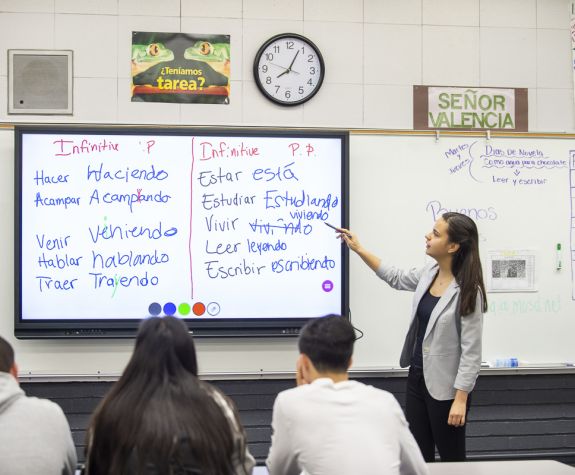 ¿Teníamos
tarea?
12 1 2 3 4 5 6 7 8 9 10 11
SEÑOR
VALENCIA
Infinitive P
Hacer Haciendo
Acampar Acampando
Venir viniendo
Hablar hablando
Traer Trayendo
Infinitive P.P.
Estar está
Estudiar Estudiando
viviendo
Vivir
Leer leyendo
Escribir escribiendo
Martes
y
Jueves
Días de Novela
Como agua para chocolate
Leer y escribir
Buenos